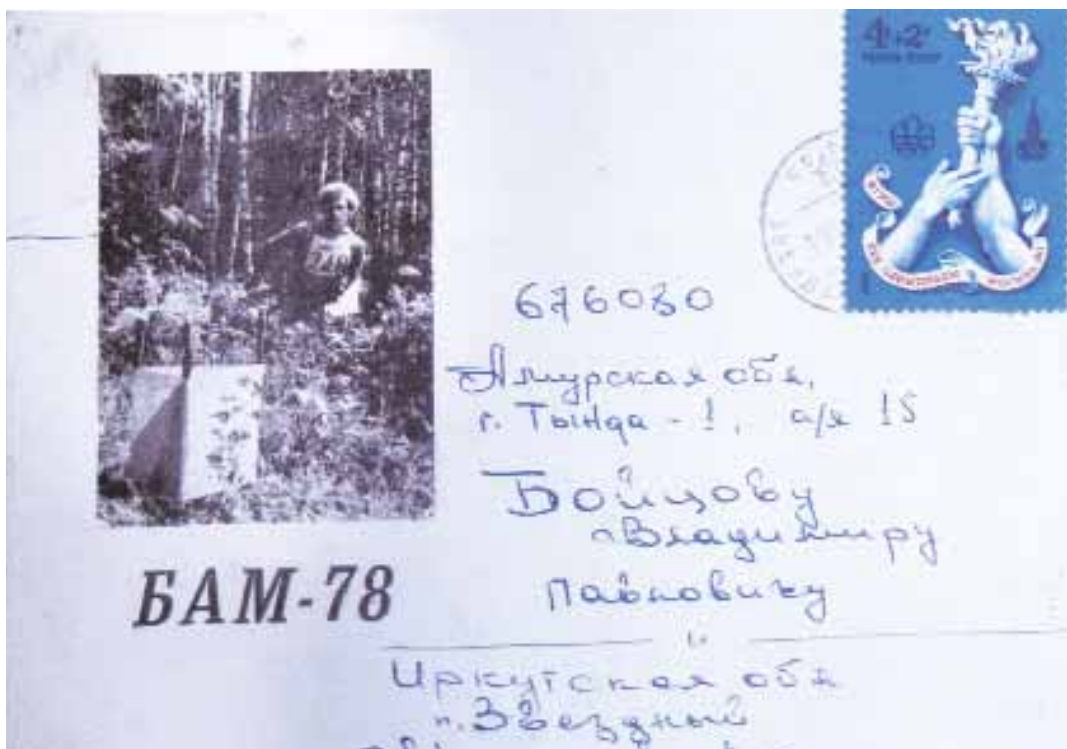 4к+2к
676080
Амурская обл,
г. Тында - 1, а/я 15
Бойцову
Владимиру
Павловичу
БАМ-78
Иркутская обл
п. Звездный